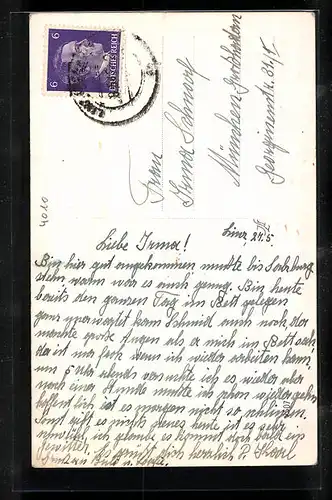 6 6
DEUTSCHES REICH
Frau
Irma
München
4010
Linz, 21. 5.
Liebe Irma!
Bin hier gut angekommen mußte bis Salzburg
stehn warm war es auch genug. Bin heute
bereits den ganzen Tag im Bett gelegen
ganz unerwartet kam Schmid auch noch, der
machte große Augen als er mich im Bett sah
ich wieder arbeiten kann,
um 5 Uhr abends versuchte ich es wieder aber
nach einer Stunde mußte ich schon wieder gehn
hoffentlich ist es morgen nicht so schlimm.
Sonst gibt es nichts neues heute ist es sehr
ich glaube es kommt noch bald ein
Gewitter. Es grüßt dich herzlich